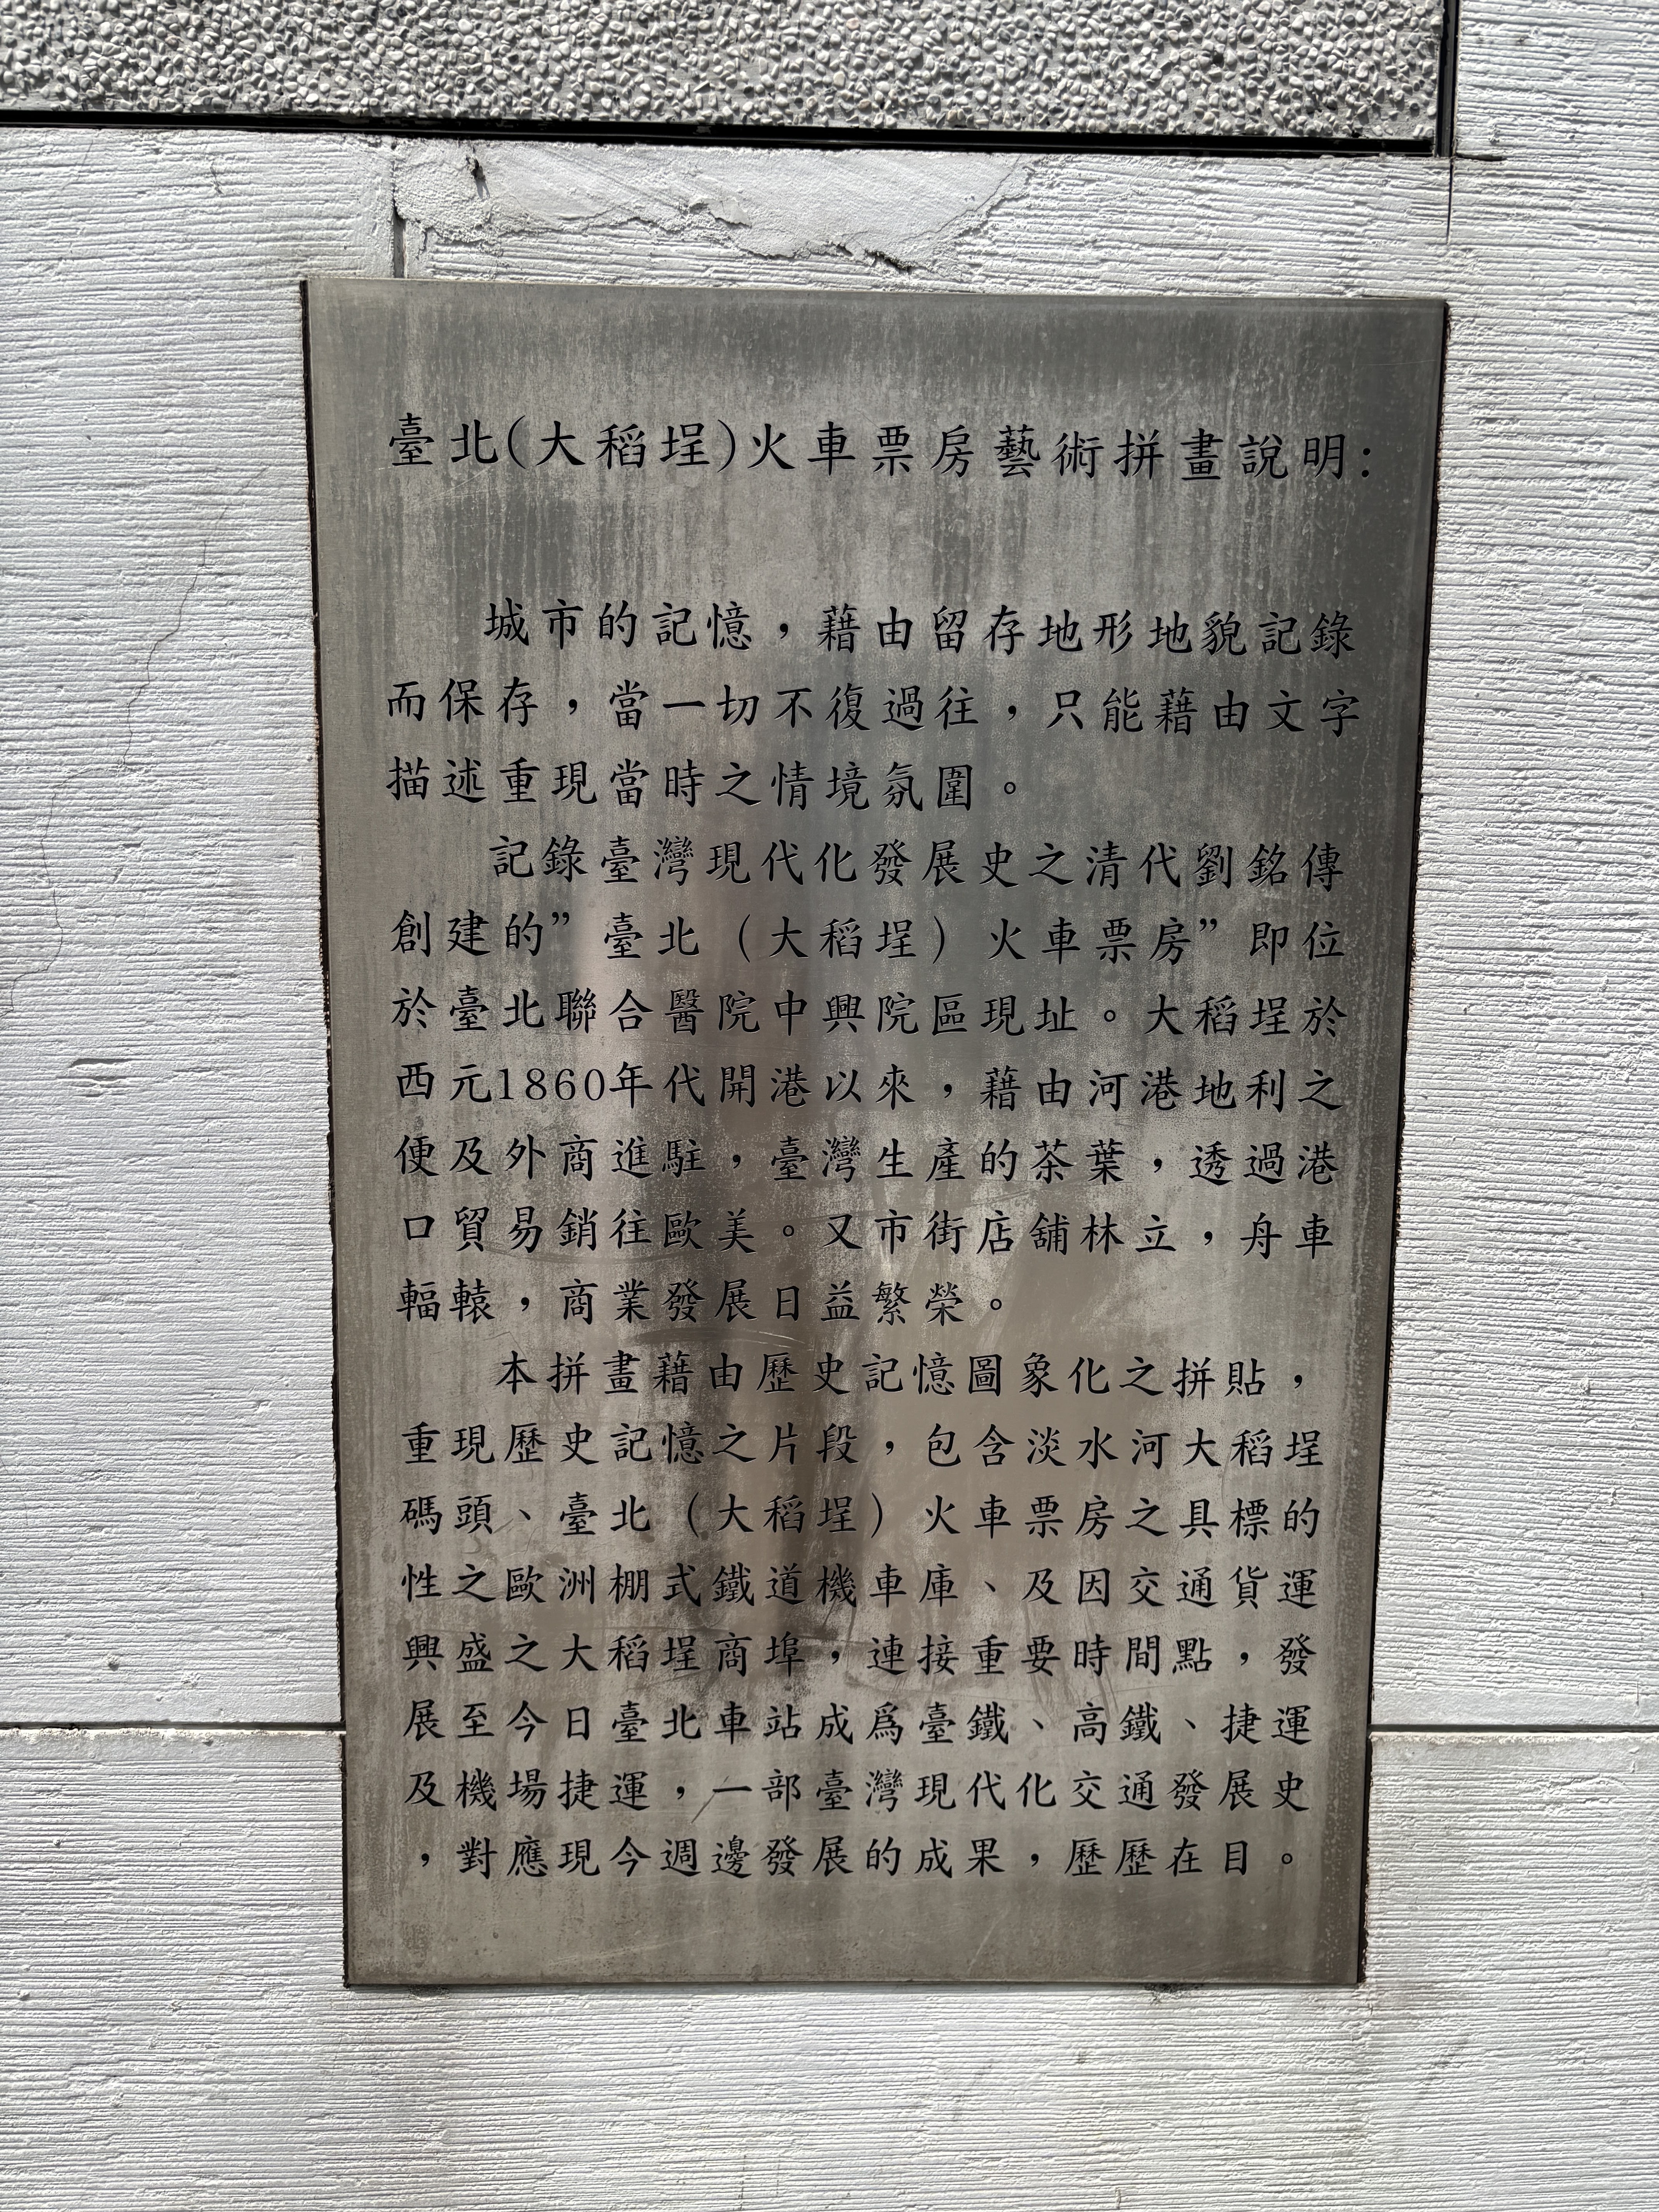 臺北(大稻埕)火車票房藝術拼畫說明:
城市的記憶，藉由留存地形地貌記錄
而保存，當一切不復過往，只能藉由文字
描述重現當時之情境氛圍。
記錄臺灣現代化發展史之清代劉銘傳
創建的”臺北（大稻埕）火車票房”即位
於臺北聯合醫院中興院區現址。大稻埕於
西元1860年代開港以來，藉由河港地利之
便及外商進駐，臺灣生產的茶葉，透過港
口貿易銷往歐美。又市街店舖林立，舟車
輻轅，商業發展日益繁榮。
本拼畫藉由歷史記憶圖象化之拼貼，
重現歷史記憶之片段，包含淡水河大稻埕
碼頭、臺北（大稻埕）火車票房之具標的
性之歐洲棚式鐵道機車庫、及因交通貨運
興盛之大稻埕商埠，連接重要時間點，發
展至今日臺北車站成爲臺鐵、高鐵、捷運
及機場捷運，一部臺灣現代化交通發展史
，對應現今週邊發展的成果，歷歷在目。